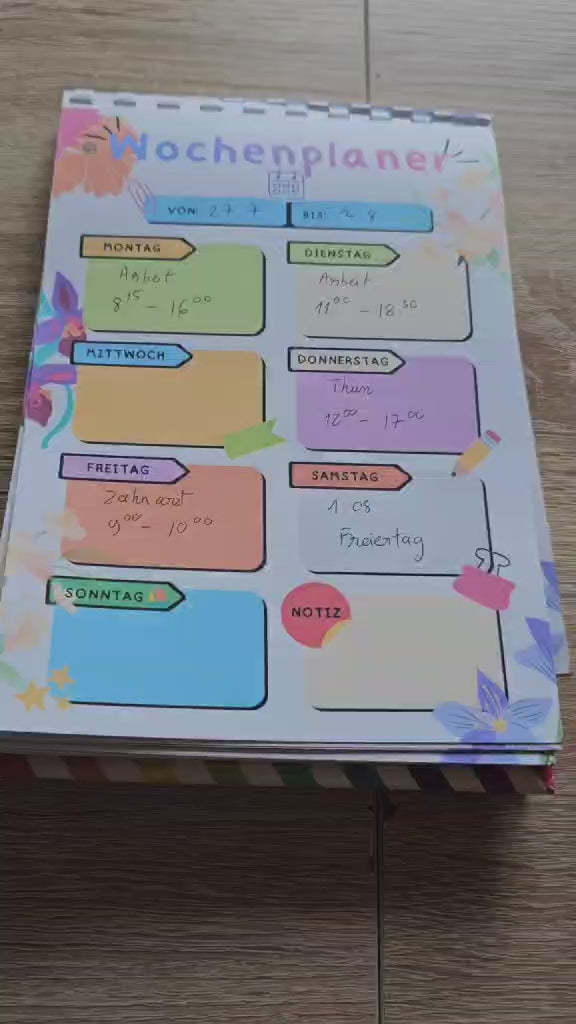 Wochenplaner
VON: 27 7 BIS: 2 8
MONTAG
Arbeit
8 15 - 16 00
DIENSTAG
Arbeit
11 00 - 18 30
MITTWOCH
DONNERSTAG
Thun
12 00 - 17 00
FREITAG
Zahnarzt
9 00 - 10 00
SAMSTAG
1.08
Freiertag
SONNTAG
NOTIZ